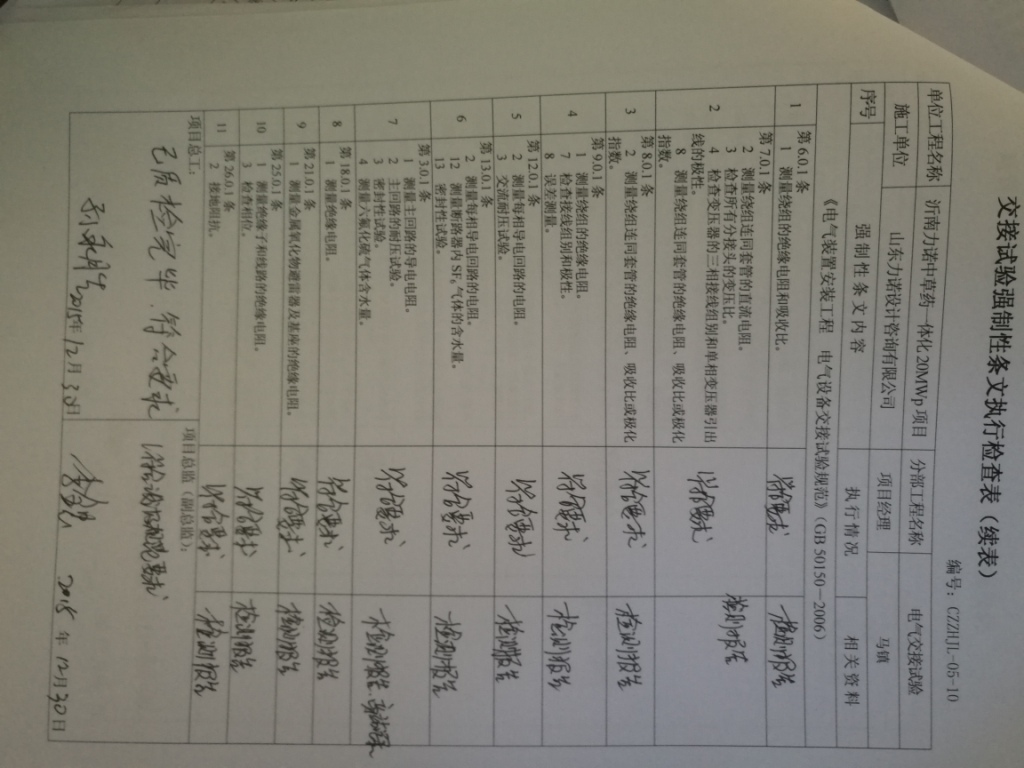 交接试验强制性条文执行检查表（续表）
编号：CZZHJL-05-10
单位工程名称 沂南力诺中草药一体化20MWp项目 分部工程名称 电气交接试验
施工单位 山东力诺设计咨询有限公司 项目经理 马镇
序号 强制性条文内容 执行情况 相关资料
《电气装置安装工程 电气设备交接试验规范》（GB 50150-2006）
第6.0.1条
1 1 测量绕组的绝缘电阻和吸收比。 符合要求 检测报告
第7.0.1条
2 测量绕组连同套管的直流电阻。
3 检查所有分接头的变压比。
2 4 检查变压器的三相接线组别和单相变压器引出 符合要求 检测报告
线的极性。
8 测量绕组连同套管的绝缘电阻、吸收比或极化
指数。
第8.0.1条
3 2 测量绕组连同套管的绝缘电阻、吸收比或极化 符合要求 检测报告
指数。
第9.0.1条
1 测量绕组的绝缘电阻。
4 7 检查接线组别和极性。 符合要求 检测报告
8 误差测量。
第12.0.1条
5 2 测量每相导电回路的电阻。 符合要求 检测报告
3 交流耐压试验。
第13.0.1条
2 测量每相导电回路的电阻。
6 12 测量断路器内SF₆气体的含水量。 符合要求 检测报告
13 密封性试验。
第3.0.1条
1 测量主回路的导电电阻。
7 2 主回路的耐压试验。 符合要求 检测报告
3 密封性试验。
4 测量六氟化硫气体含水量。
第18.0.1条
8 1 测量绝缘电阻。 符合要求 检测报告
第21.0.1条
9 1 测量金属氧化物避雷器及基座的绝缘电阻。 符合要求 检测报告
第25.0.1条
10 1 测量绝缘子和线路的绝缘电阻。 符合要求 检测报告
3 检查相位。
第26.0.1条
11 2 接地阻抗。 符合要求 检测报告
项目总工： 项目总监（副总监）：
已质检完毕，符合要求
2015年12月30日 2015年12月30日